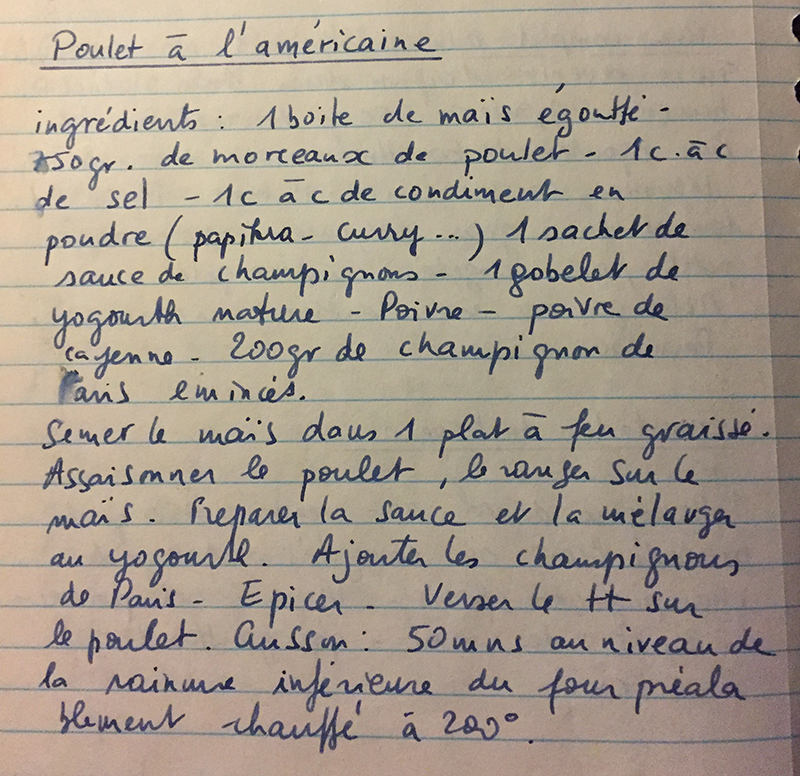 Poulet à l'américaine
ingrédients : 1 boite de maïs égoutté -
750gr. de morceaux de poulet - 1 c. à c
de sel - 1 c à c de condiment en
poudre ( papika - curry ... ) 1 sachet de
sauce de champignons - 1 gobelet de
yogourth nature - Poivre - poivre de
cayenne - 200gr de champignon de
Paris emincés.
Semer le maïs dans 1 plat à feu graissé.
Assaisonner le poulet, le ranger sur le
maïs. Preparer la sauce et la mélanger
au yogourth. Ajouter les champignons
de Paris - Epicer - Verser le tt sur
le poulet. Cuisson : 50mns au niveau de
la rainure inférieure du four préala
blement chauffé à 200°.